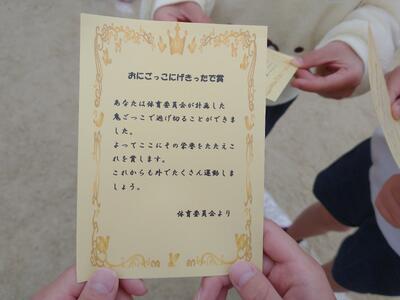 おにごっこにげきったで賞
あなたは体育委員会が計画した
鬼ごっこで逃げ切ることができま
した。
よってここにその栄誉をたたえこ
れを賞します。
これからも外でたくさん運動しま
しょう。
体育委員会より